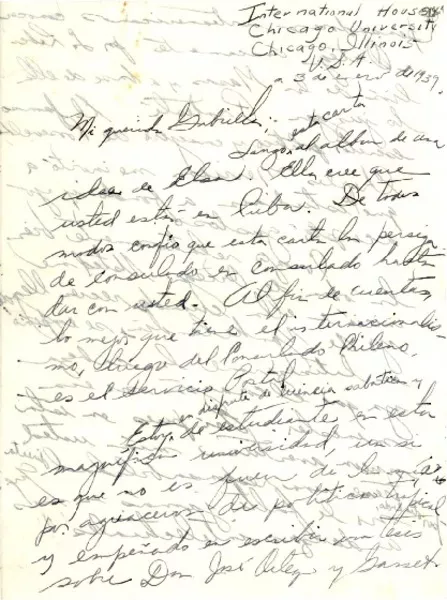 International House
Chicago University
Chicago, Illinois
U.S.A.
3 de enero de 1939.
Mi querida Gabriela;
esta carta
Lanzo al albur de una
idea de Elsa. Ella cree que
usted está en Cuba. De todos
modos confío que esta carta la persiga
de consulado en consulado hasta
dar con usted. Al fin de cuentas,
lo mejor que tiene el internacionalis-
mo, luego del Consulado Chileno,
es el Servicio Postal.
en disfrute de licencia sabática y
Estoy de estudiante en esta
magnífica universidad, un si
es que no es
por aguaceros de política tropical
y empeñado en escribir un tesis
sobre Don José Ortega y Gasset